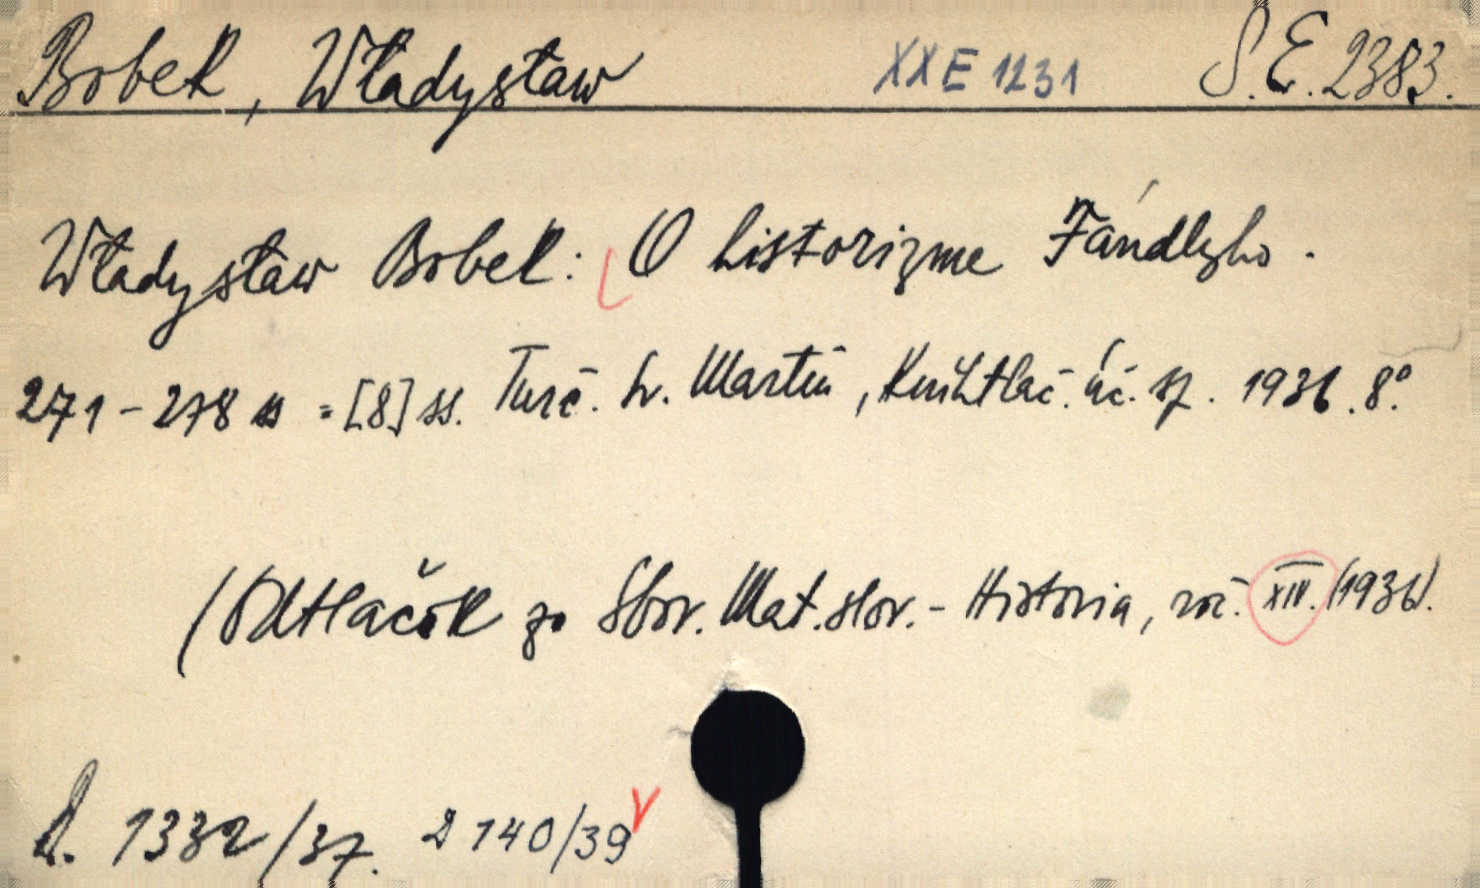 Bobek, Władysław XX E 1231 S.E. 2383.
Władysław Bobek: O historizme Fándlyho.
271-278 ss = [8] ss. Turč. Sv. Martin, Kníhtlač. úč. sp. 1936. 8°
(Odtlačok zo Sbor. Mat. slov. - Historia, roč. XIV. (1936).
D. 1332/37. D 140/39